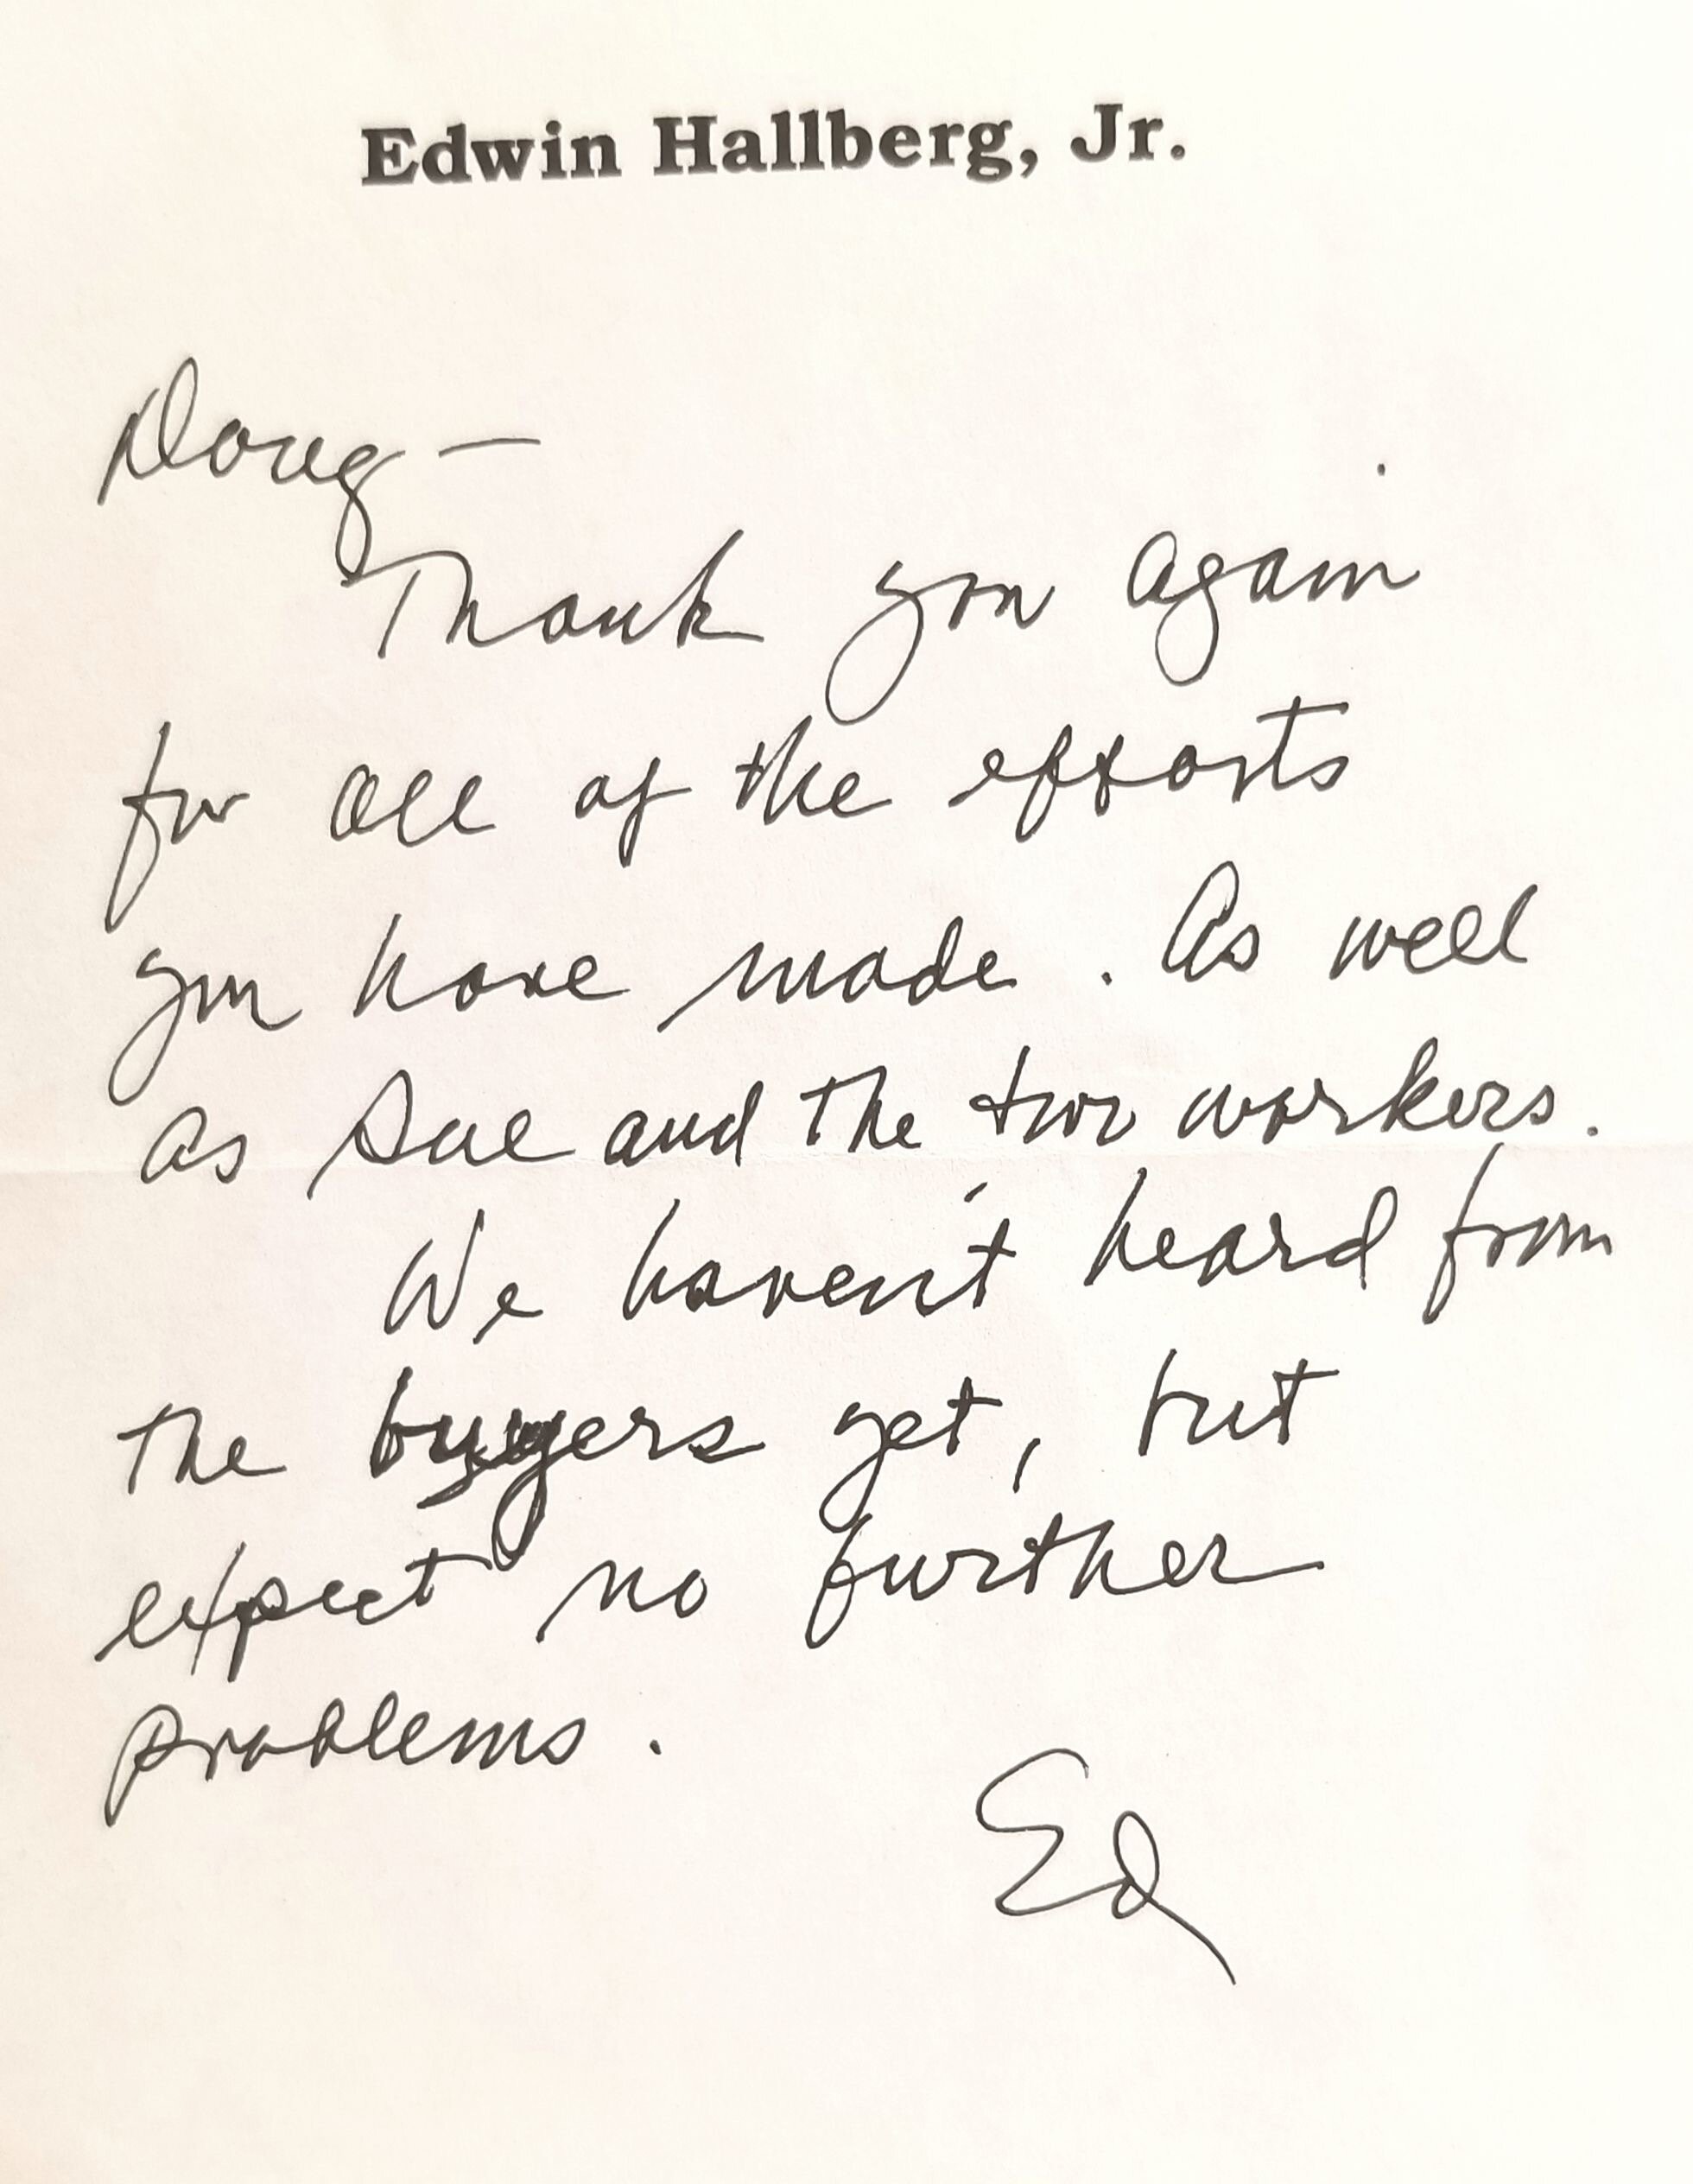 Edwin Hallberg, Jr.
Doug —
Thank you again
for all of the efforts
you have made. As well
as Sue and the two workers.
We haven't heard from
the buyers yet, but
expect no further
problems.
Ed